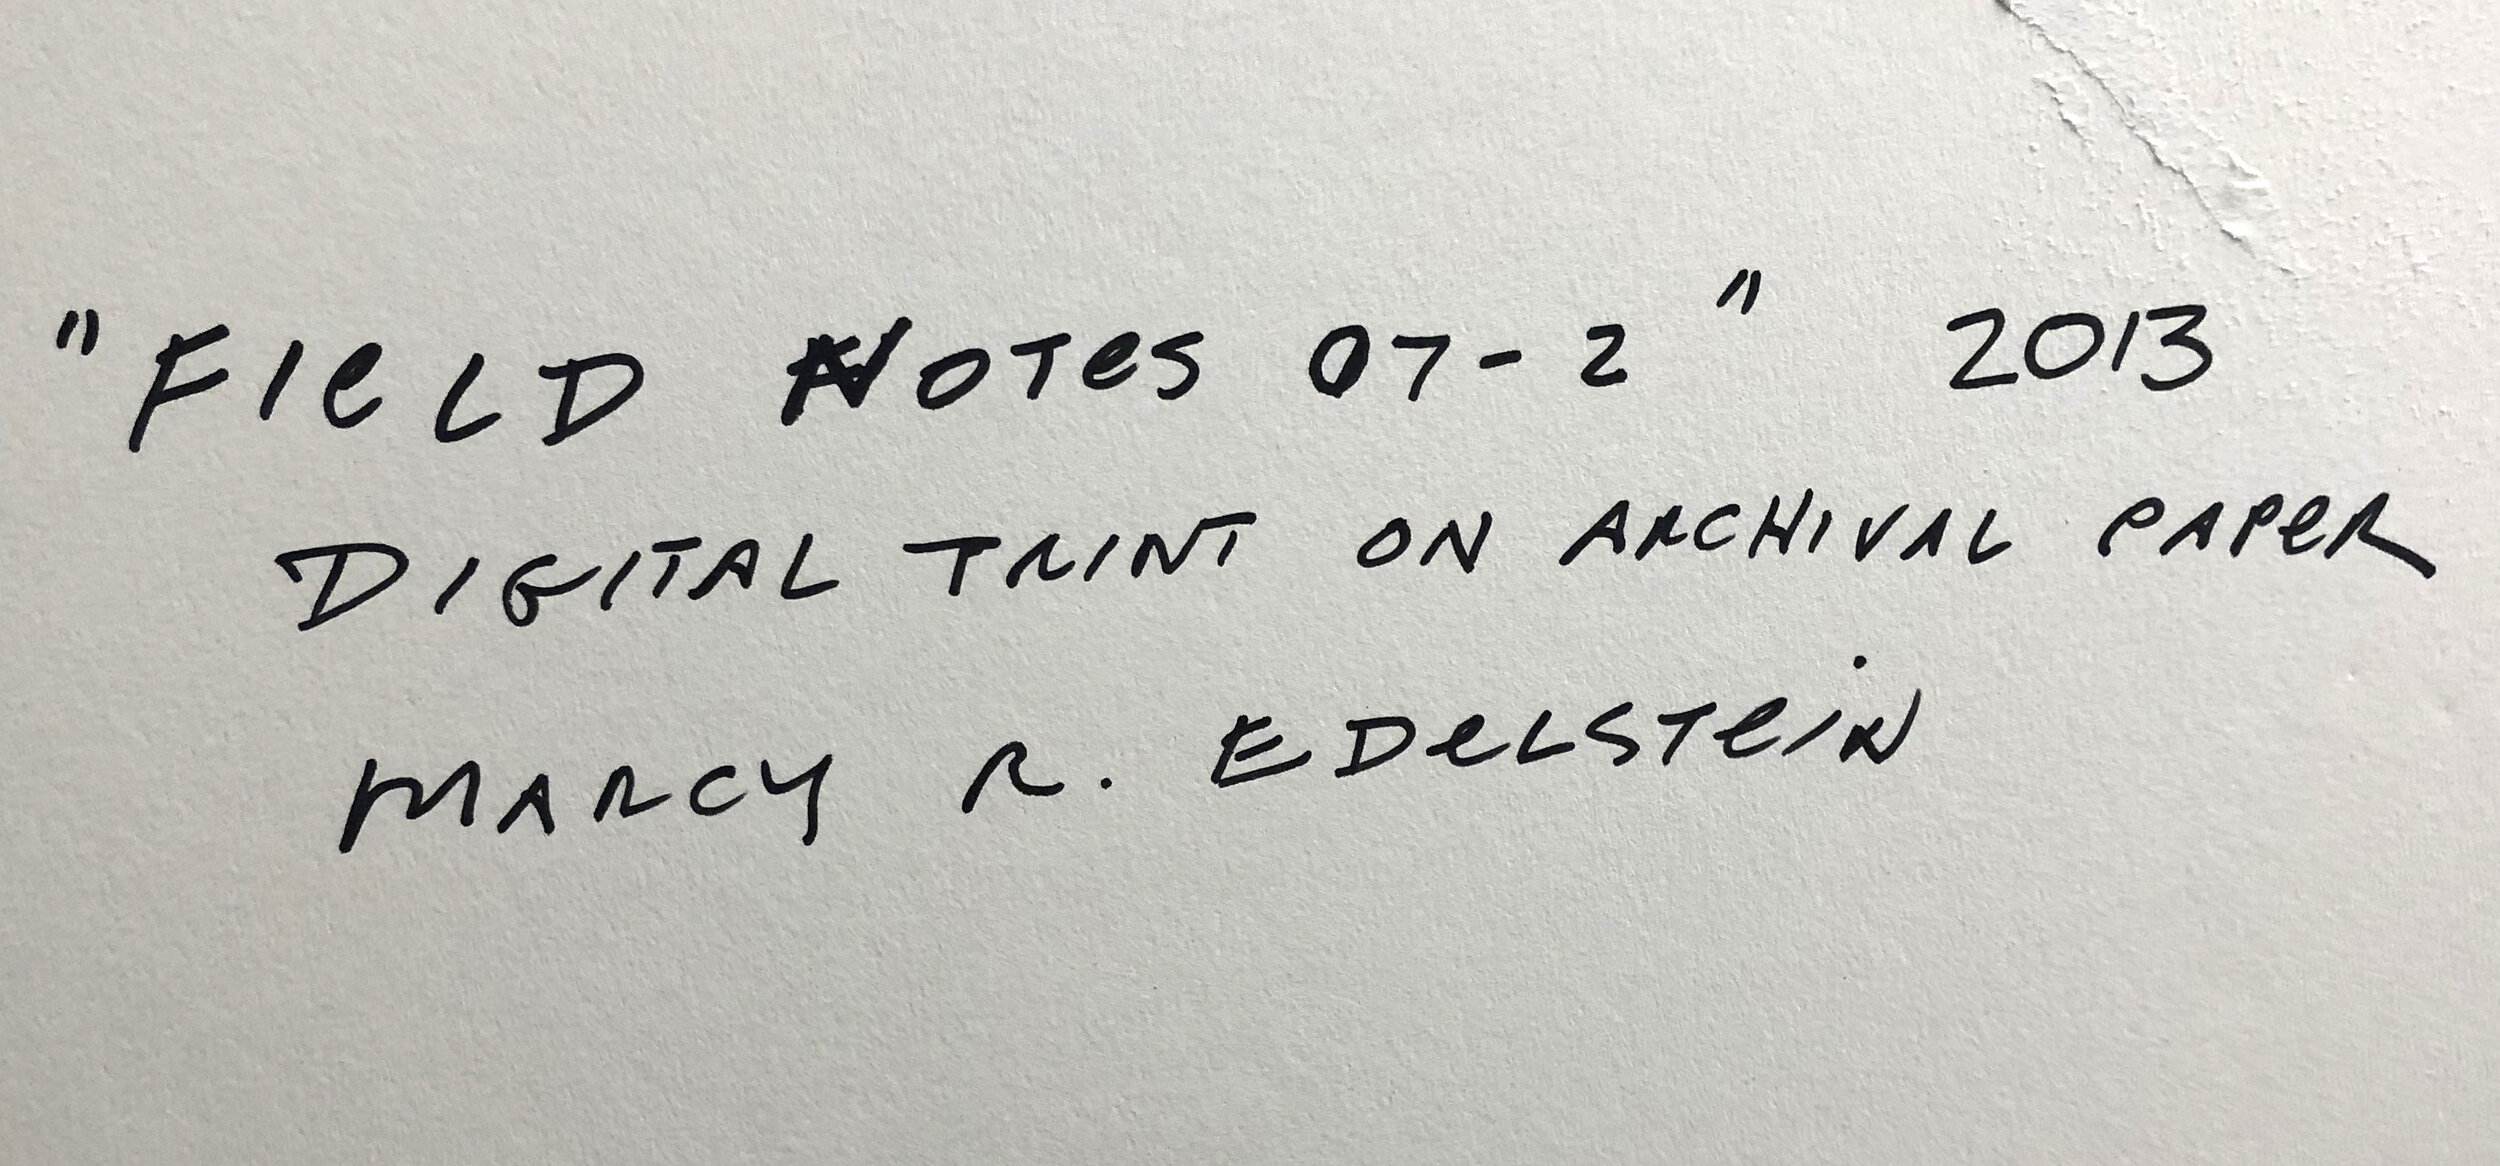 "FIeLD NOTes 07-2" 2013
DIGITAL TRINT ON ARCHIVAL PAPeR
MARCY R. EDeLSTeiN